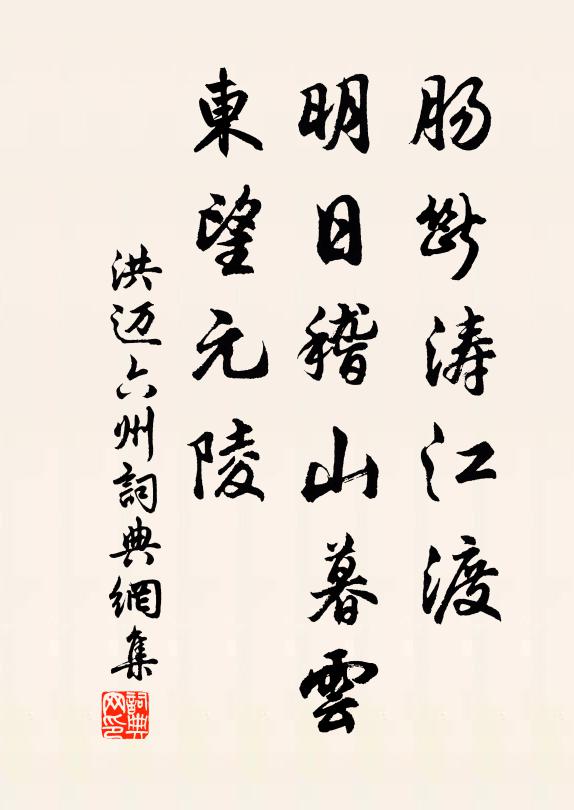 肠断涛江渡
明日稽山暮雲
東望元陵
洪迈六州詞典網集
詞典網印